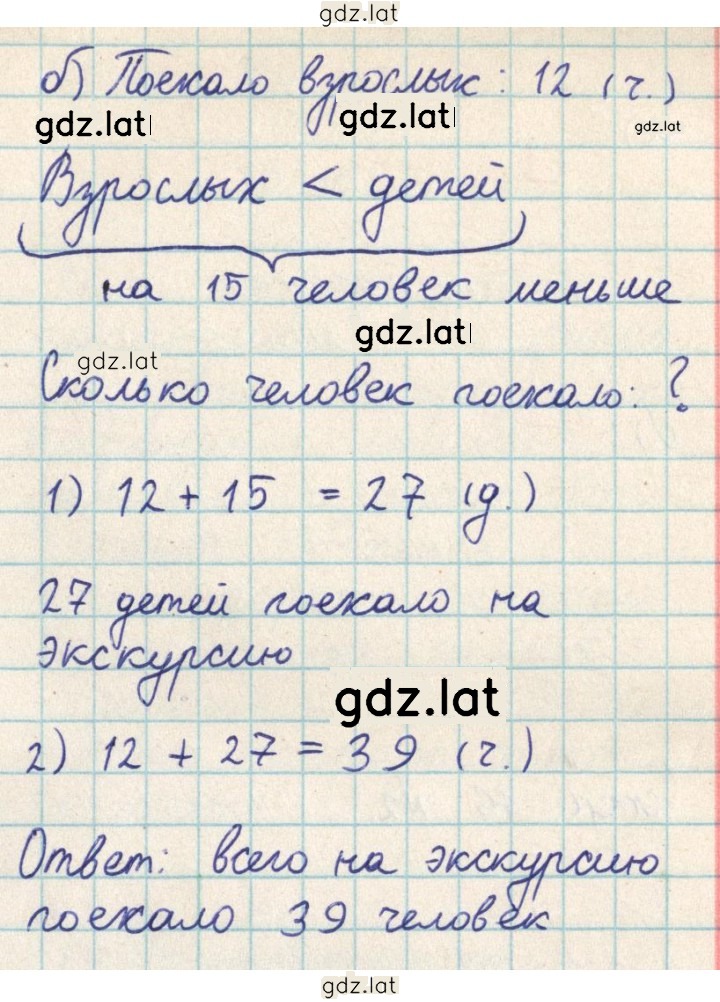 gdz.lat
б) Поехало взрослых: 12 (ч.)
gdz.lat gdz.lat gdz.lat
Взрослых < детей
на 15 человек меньше
gdz.lat
gdz.lat
Сколько человек поехало: ?
1) 12 + 15 = 27 (д.)
27 детей поехало на
экскурсию
gdz.lat
2) 12 + 27 = 39 (ч.)
Ответ: всего на экскурсию
поехало 39 человек
gdz.lat